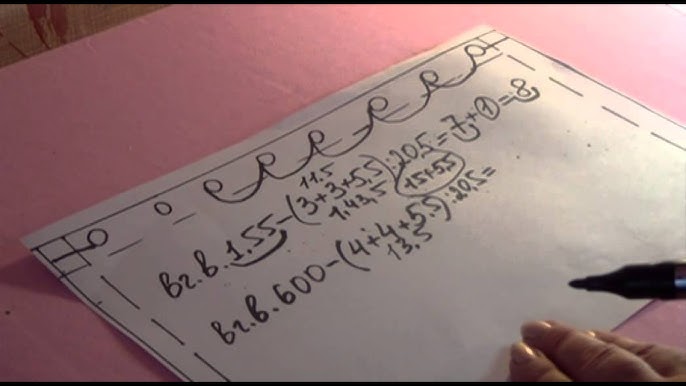 11.5
вг.в. 1.55-(3+3+5.5):20.5=7+1=8
1.43,5 15+5,5
вг.в. 600-(4+4+5.5):20,5=
13.5